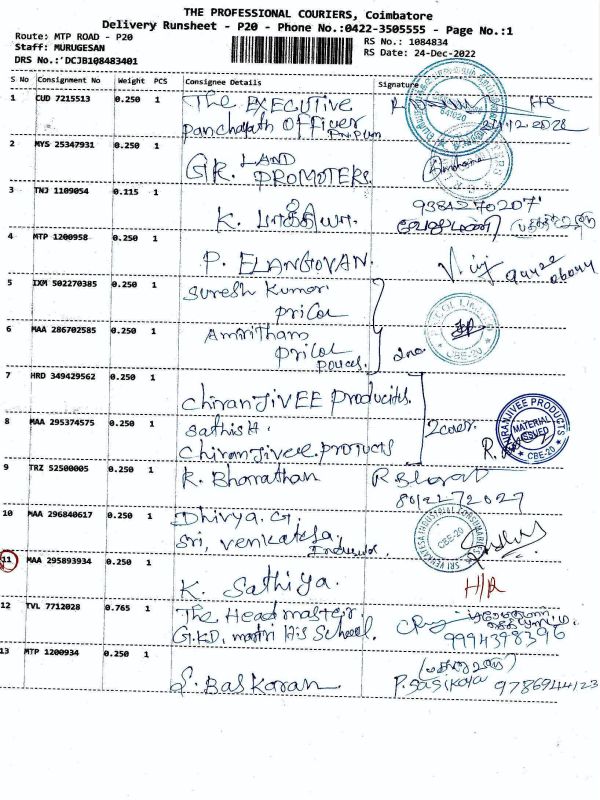 THE PROFESSIONAL COURIERS, Coimbatore
Delivery Runsheet - P20 - Phone No.:0422-3505555 - Page No.:1
Route: MTP ROAD - P20
Staff: MURUGESAN
DRS No.:'DCJB108483401
RS No.: 1084834
RS Date: 24-Dec-2022
S No Consignment No Weight PCS Consignee Details Signature
1 CUD 7215513 0.250 1 The EXECUTIVE
Panchayath Officer
24/12.2022
2 MYS 25347931 0.250 1 GR. LAND
PROMOTERS
3 TNJ 1109054 0.115 1 K.
9384270207
4 MTP 1200958 0.250 1 P. ELANGOVAN.
94422
06044
5 IXM 502270385 0.250 1 Suresh Kumar
Pricol
6 MAA 286702585 0.250 1 Amiritham
Pricol
CBE-20
7 HRD 349429562 0.250 1 ChiranJiVEE Products.
8 MAA 295374575 0.250 1 Sathish.
Chiranjivee products
2 cover.
CHIRANJIVEE PRODUCTS
MATERIAL
ISSUED
CBE-20
9 TRZ 52500005 0.250 1 R. Bharathan R Bharat
10 MAA 296840617 0.250 1 Dhivya. G.
Sri, Venkatesa
SRI VENKATESA INDUSTRIAL CONSUMABLES
CBE-20
11 MAA 295893934 0.250 1 K. Sathiya.
12 TVL 7712028 0.765 1 The Head master.
G.KD. matri His School.
9994398396
13 MTP 1200934 0.250 1 S. Baskaran P. Sasikala 9786944123